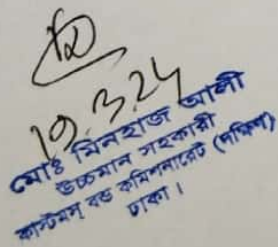 19.3.24
মোঃ মিনহাজ আলী
উচ্চমান সহকারী
কাস্টমস্ বন্ড কমিশনারেট (দক্ষিণ)
ঢাকা।